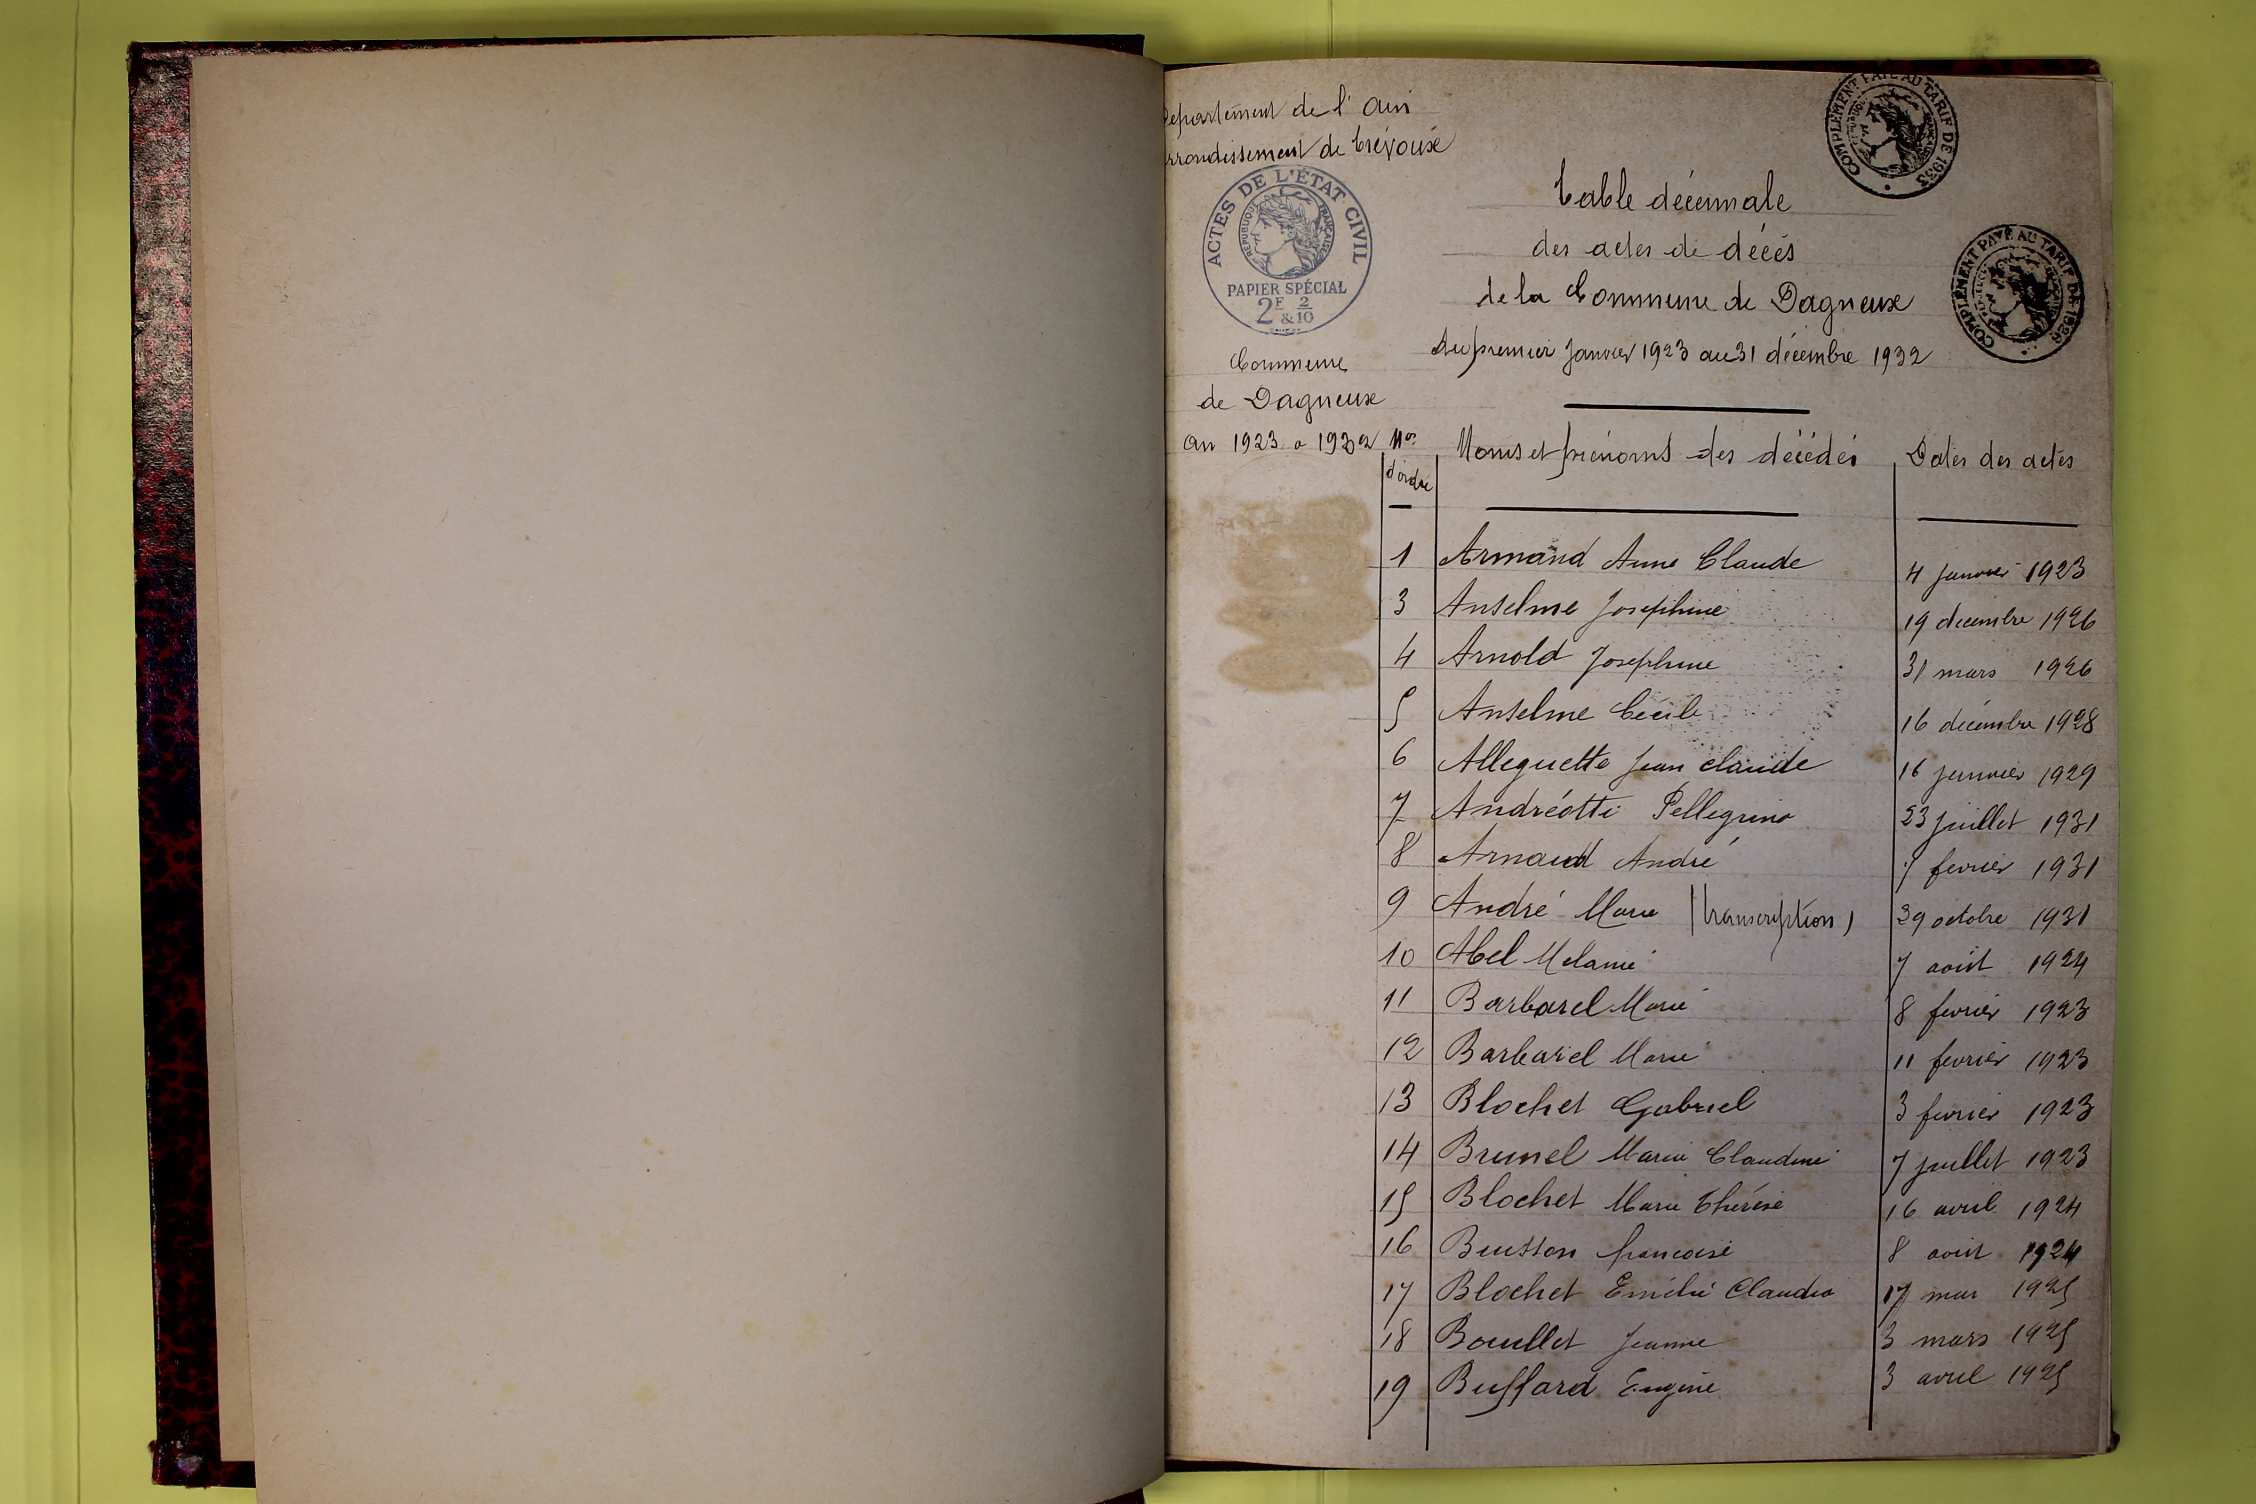 Département de l'Ain
Arrondissement de Trévoux
ACTES DE L'ÉTAT CIVIL
RÉPUBLIQUE FRANÇAISE
PAPIER SPÉCIAL
2F & 2/10
COMPLÉMENT PAYÉ AU TARIF DE 1933
COMPLÉMENT PAYÉ AU TARIF DE 1926
Table décennale
des actes de décès
de la Commune de Dagneux
Du premier Janvier 1923 au 31 décembre 1932
Commune
de Dagneux
An 1923 a 1932
Nos d'ordre Noms et prénoms des décédés Dates des actes
1 Armand Anne Claude 4 janvier 1923
3 Anselme Josephine 19 decembre 1926
4 Arnold Josephine 31 mars 1926
5 Anselme Cécile 16 décembre 1928
6 Alleguette Jean claude 16 janvier 1929
7 Andréotti Pellegrino 23 juillet 1931
8 Arnaud André 7 fevrier 1931
9 André Marie (transcription) 29 octobre 1931
10 Abel Melanie 7 août 1924
11 Barbarel Marie 8 fevrier 1923
12 Barbarel Marie 11 fevrier 1923
13 Blochet Gabriel 3 fevrier 1923
14 Brunel Marie Claudine 7 juillet 1923
15 Blochet Marie Thérèse 16 avril 1924
16 Buisson francoise 8 août 1924
17 Blochet Emélie Claudia 17 mai 1925
18 Bouillet Jeanne 3 mars 1925
19 Buffard Eugène 3 avril 1925